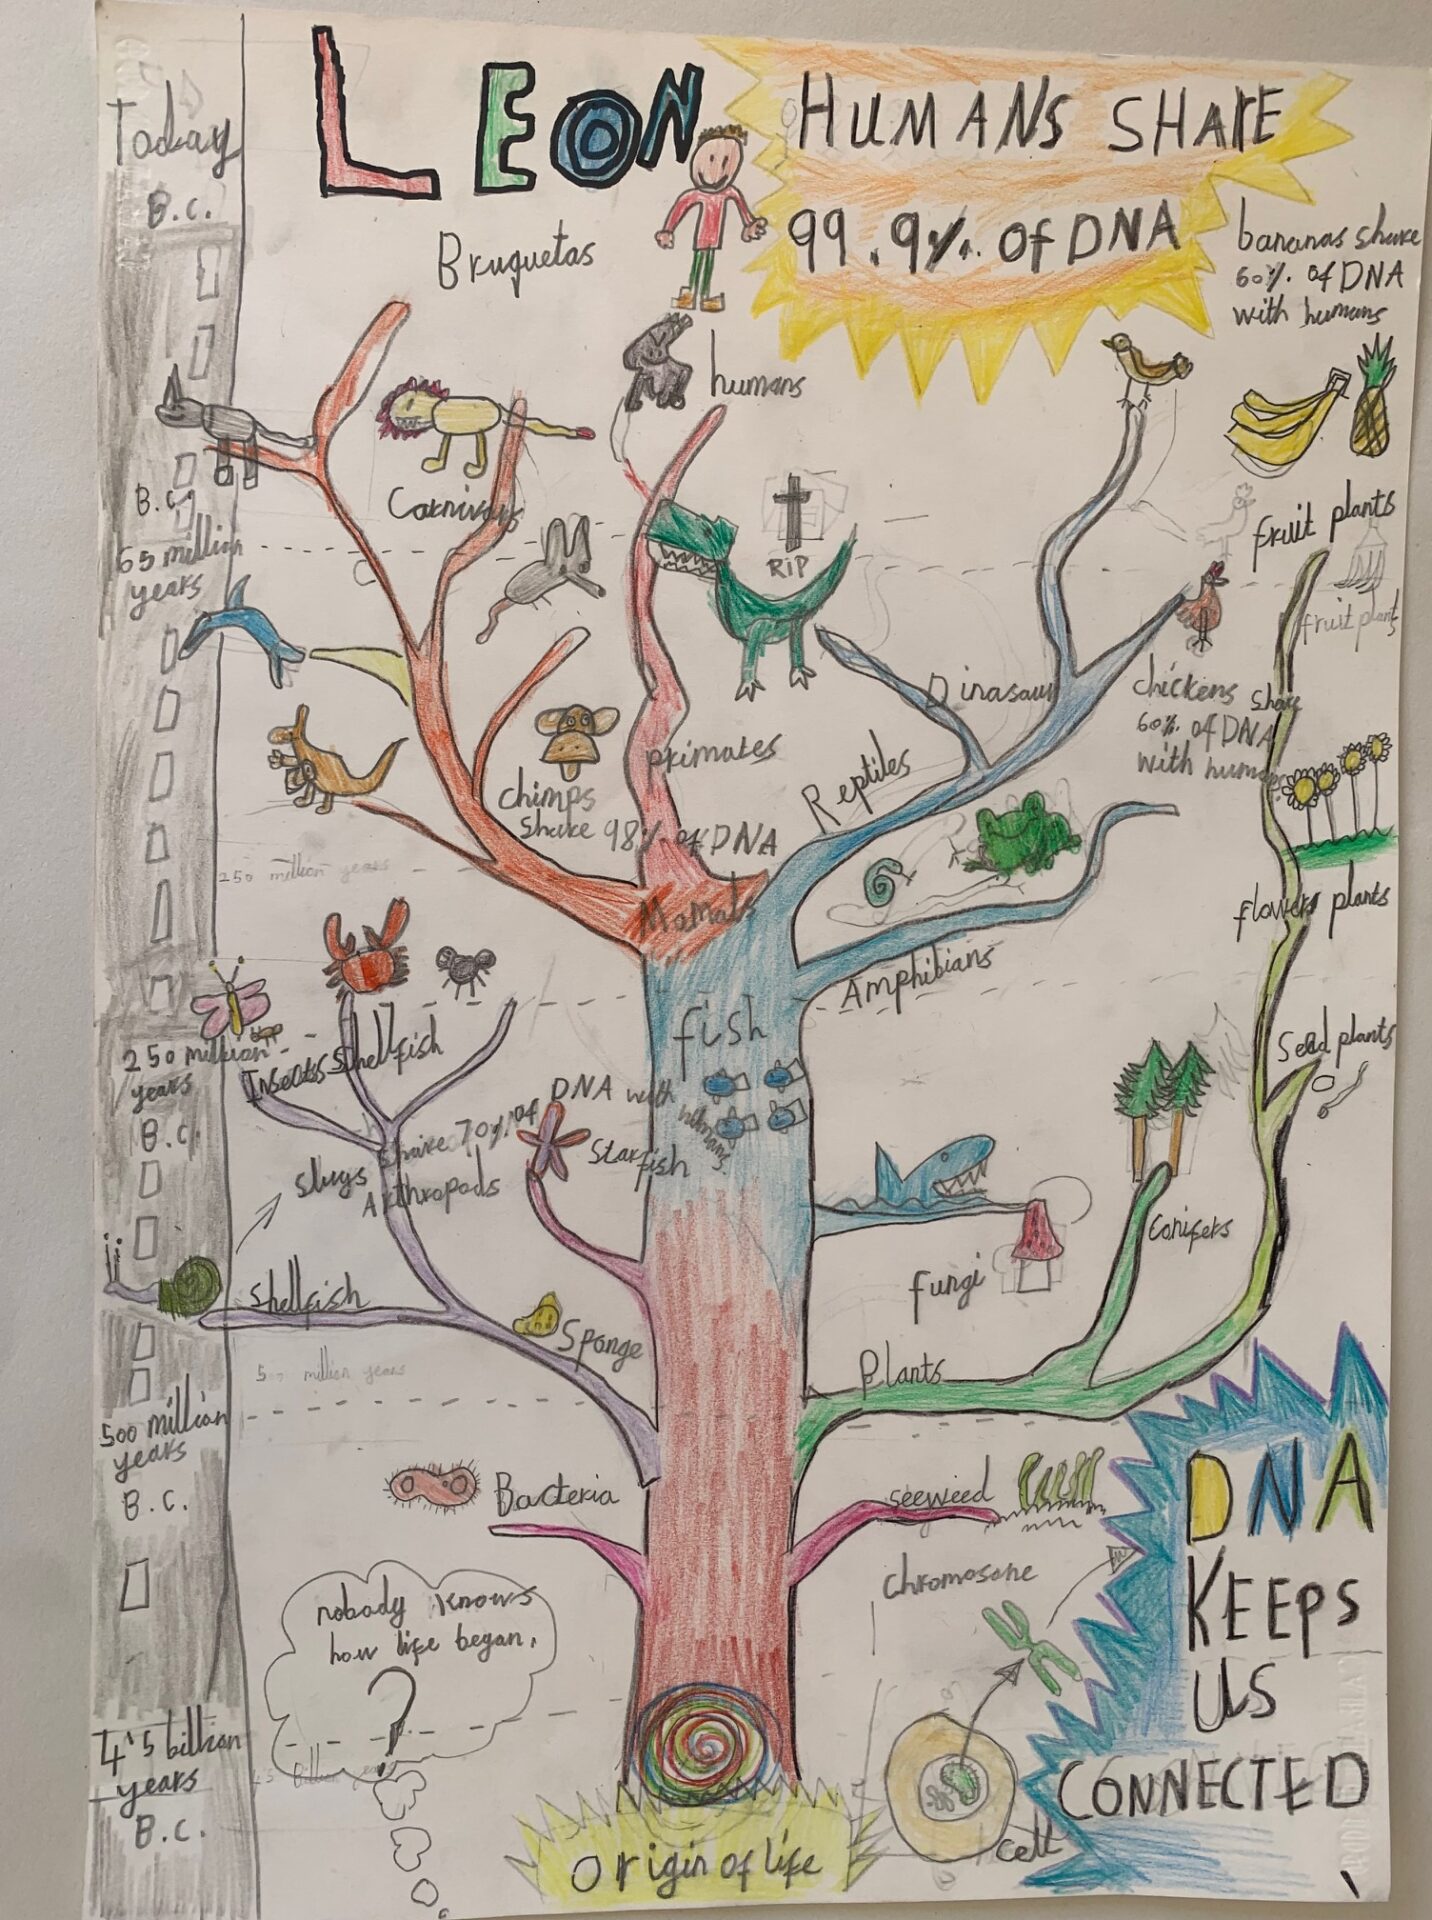 LEON
Bruguetas
HUMANS SHARE
99.9% of DNA
bananas share
60% of DNA
with humans
Today
B.C.
humans
Carnivors
RIP
fruit plants
fruit plants
B.C.
65 million
years
Dinasaur
chickens share
60% of DNA
with humans
primates
Reptiles
chimps
share 98% of DNA
250 million years
Mamals
flowers plants
Amphibians
fish
Seed plants
250 million
years
B.C.
Insects
Shellfish
slugs share 70% of DNA with
humans.
Arthropods
Starfish
Conifers
fungi
Shellfish
Sponge
Plants
500 million years
500 million
years
B.C.
Bacteria
seeweed
chromosone
nobody knows
how life began,
?
4'5 billion
years
B.C.
DNA
KEEPS
US
CONNECTED
cell
Origin of life